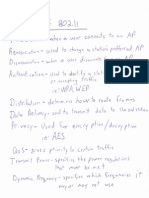 802.11
when a user connects to an AP
Reassociation - used to change a station's preferred AP
Disassociation - when a user disconnects from an AP
Authentication - used to clarify a station
or accepting traffic
WPA, WEP
Distribution - determines how to route frames
Data Delivery - used to transmit data to the stations
Privacy - Used for encryption/decryption
is: AES
QoS - gives priority to certain traffic
Transmit Power - specifies the power regulations
that must be used
Dynamic Frequency - specifies which frequencies it
may or may not use